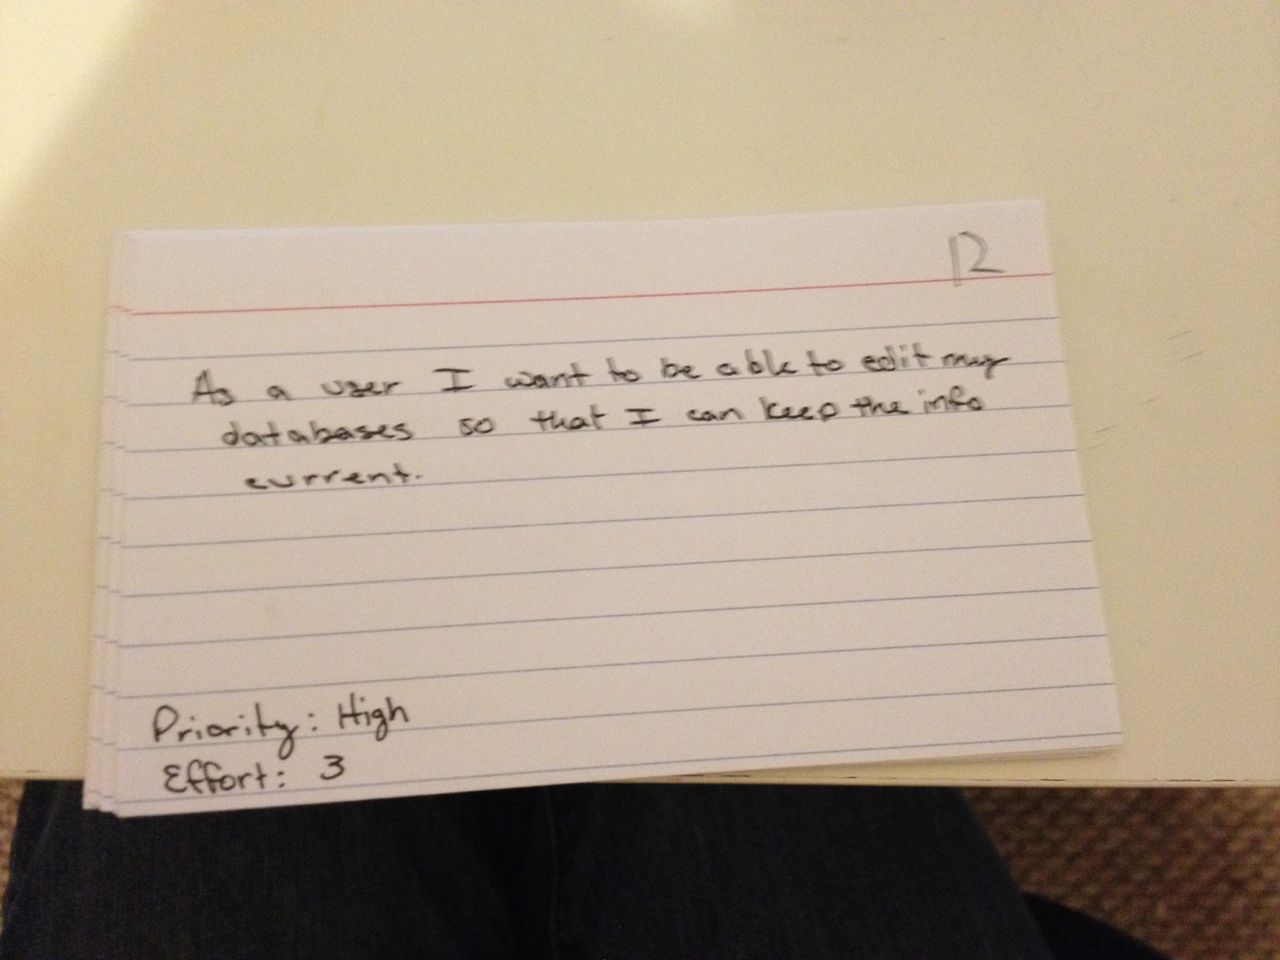 12
As a user I want to be able to edit my
databases so that I can keep the info
current.
Priority: High
Effort: 3